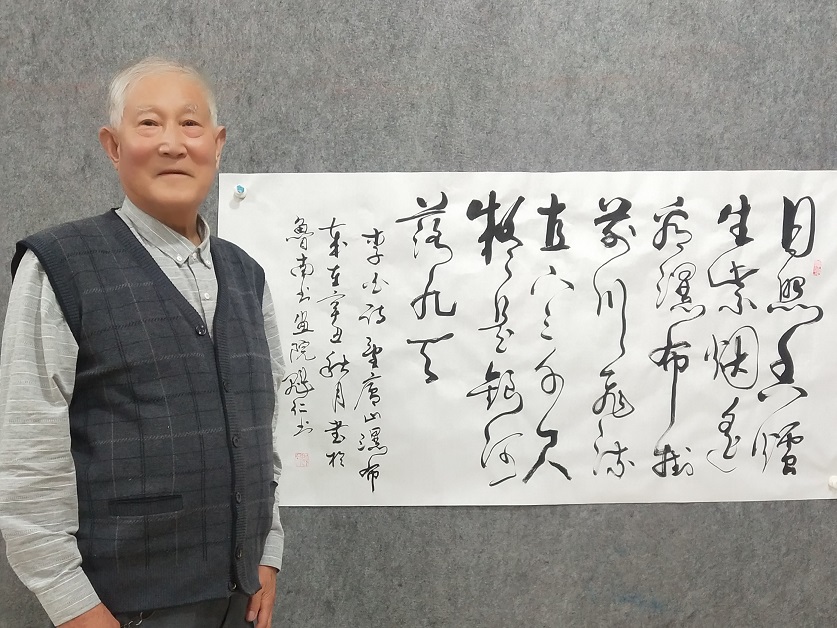 日照香爐
生紫烟遥
看瀑布掛
前川飛流
直下三千尺
疑是銀河
落九天
李白詩望廬山瀑布
歲在辛丑秋月書於
魯南书画院仁书